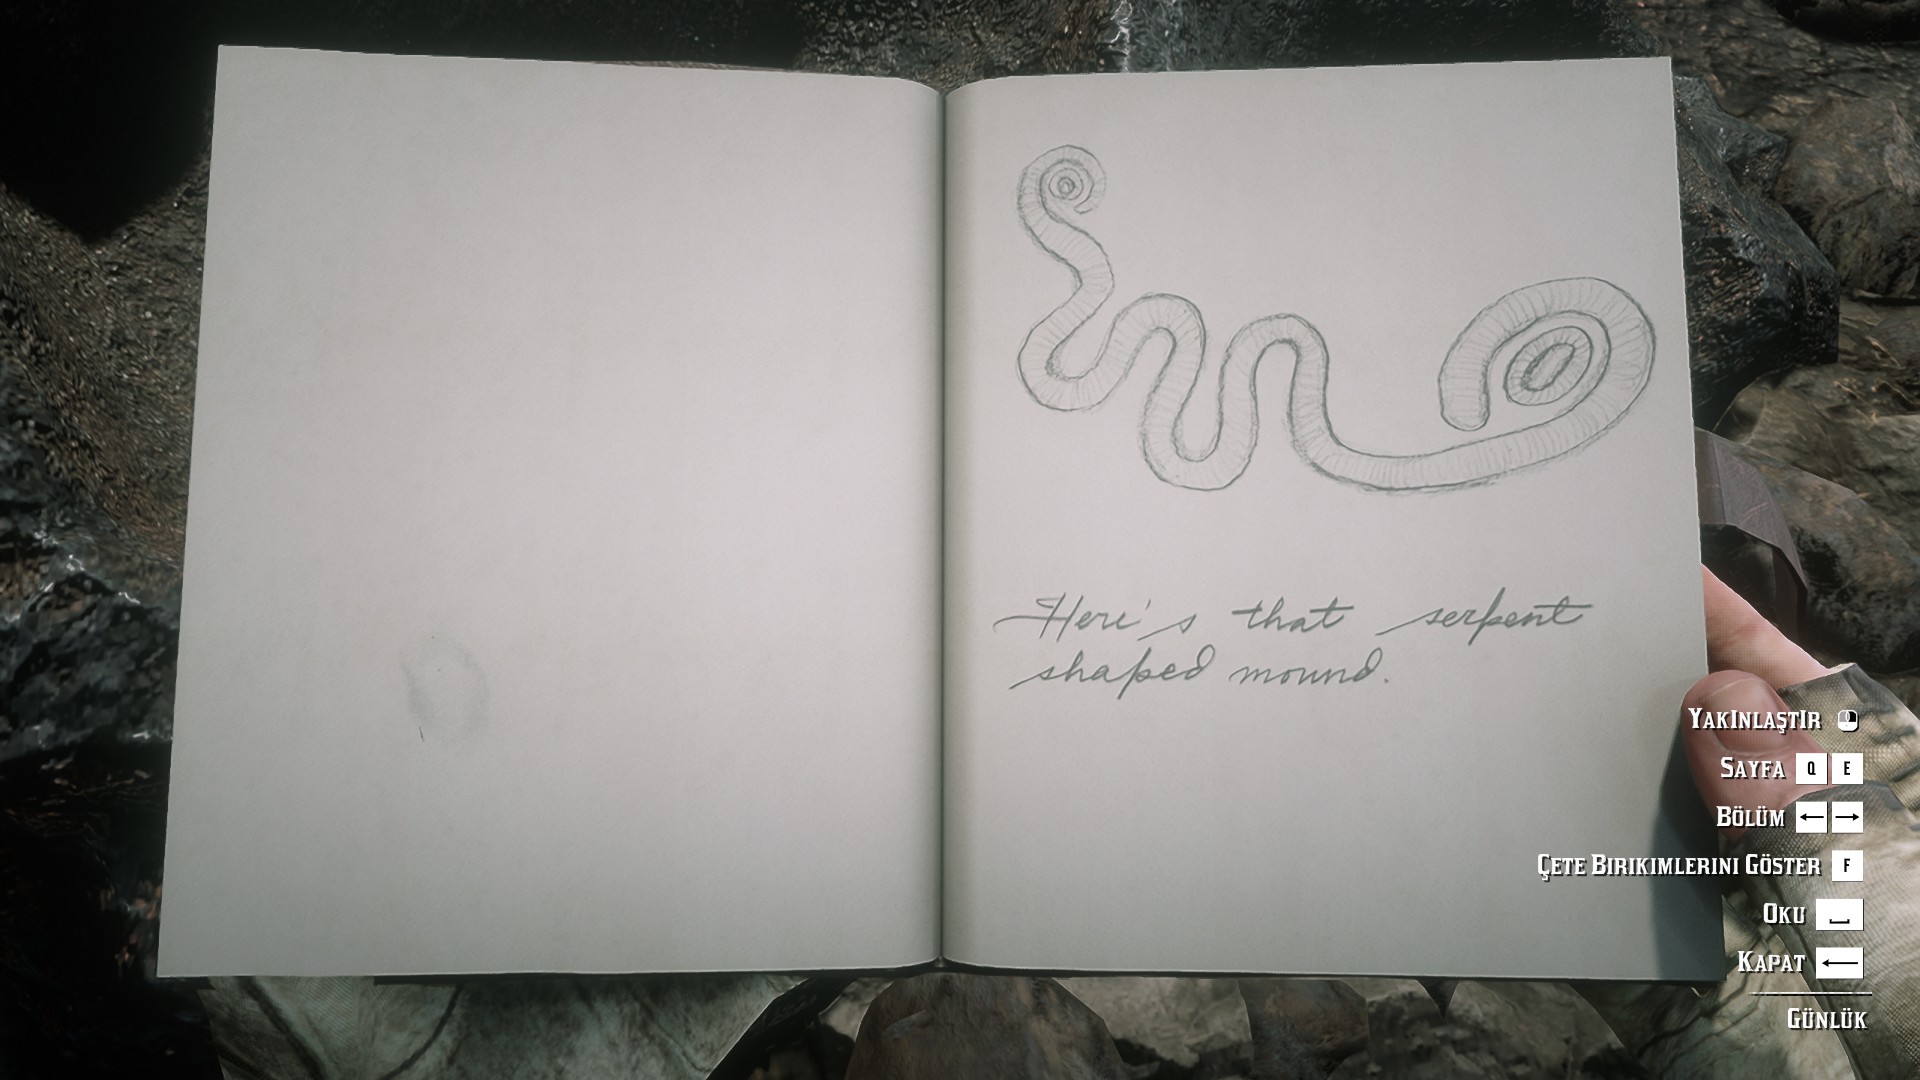 Here's that serpent
shaped mound.
YAKINLAŞTIR
SAYFA Q E
BÖLÜM ← →
ÇETE BIRIKIMLERINI GÖSTER F
OKU
KAPAT ←
GÜNLÜK